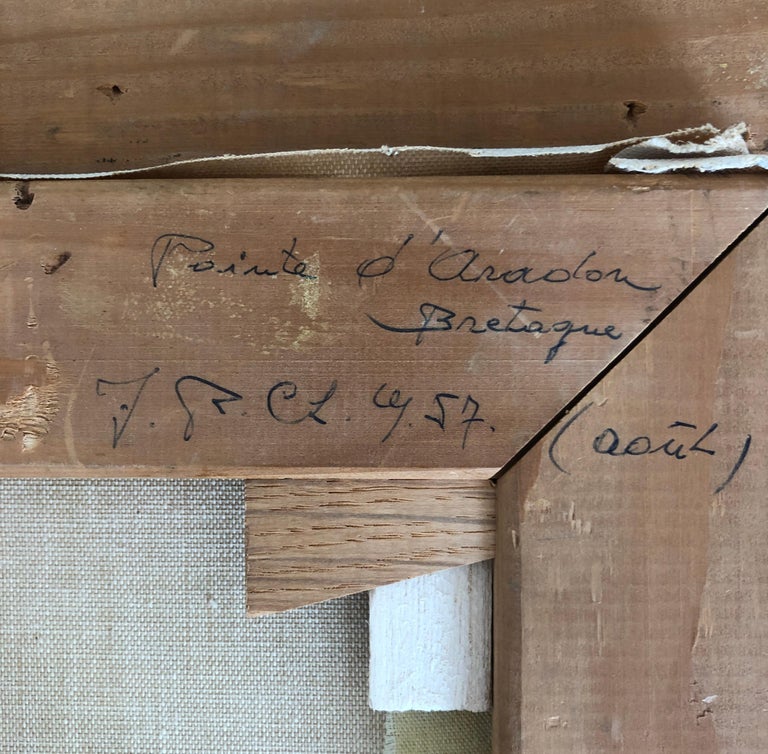 Pointe d'Aradon
Bretagne
J. R. CL. 57.
(août)